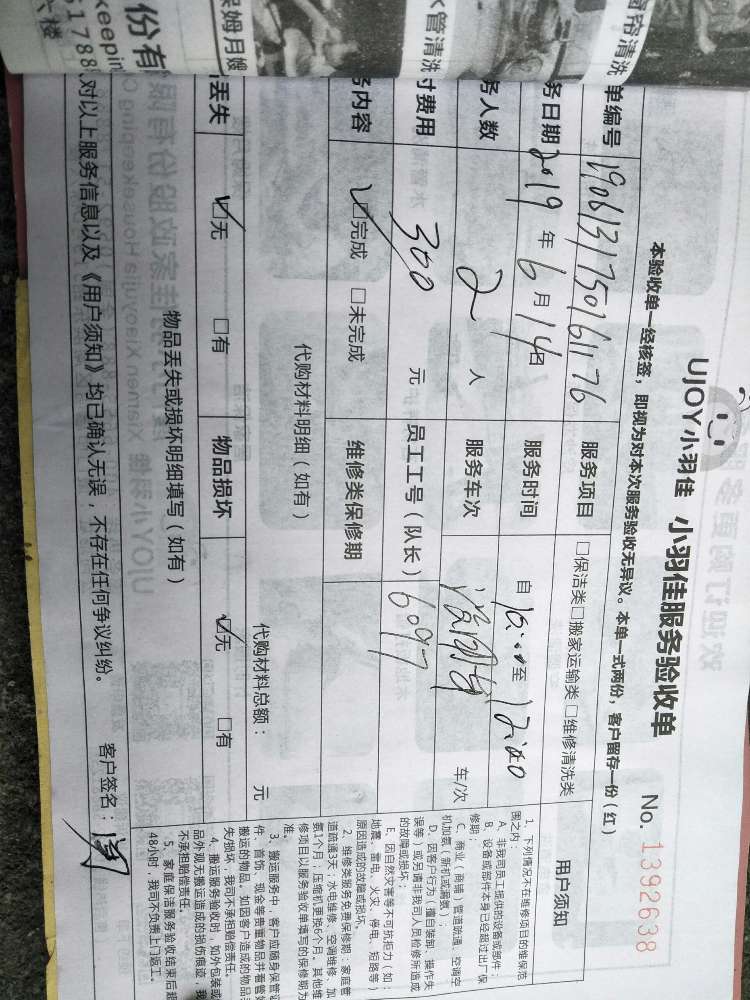 保姆月嫂
水管清洗
窗帘清洗
份有
keeping
51788
六楼
UJOY小羽佳 小羽佳服务验收单
No. 1392638
本验收单一经核签，即视为对本次服务验收无异议。本单一式两份，客户留存一份（红）
单编号 1906131750161176 服务项目 □保洁类□搬家运输类□维修清洗类
务日期 2019年6月14日 服务时间 自10:00至12:00
务人数 2人 服务车次 车/次
付费用 300元 员工工号（队长） 6097
务内容 ☑完成 □未完成 维修类保修期
代购材料明细（如有）
代购材料总额： 元
丢失 ☑无 □有 物品损坏 ☑无 □有
物品丢失或损坏明细填写（如有）
对以上服务信息以及《用户须知》均已确认无误，不存在任何争议纠纷。 客户签名：
用户须知
1、下列情况不在维修项目的维保范
围之内：
A、非我司员工提供的设备或部件；
B、设备或部件本身已经超过出厂保
修期；
C、商业（商铺）管道疏通、空调空
机加氨（新机或漏氨）；
D、因客户行为（擅自装卸、操作失
误等）或另请非我司人员检修所造成
的故障或损坏；
E、因自然灾害等不可抗拒力（如：
地震、雷电、火灾、停电、短路等）
原因造成的故障或损坏。
2、维修类服务免费保修期：家庭管
道疏通3天；水电维修、空调维修、加
氨1个月；压缩机更换6个月。其他维
修项目以服务验收单填写的保修期为
准。
3、搬运服务中，客户应随身保管证
件、首饰、现金等贵重物品并看管好
搬运的物品。如因客户造成的物品丢
失/损坏，我司不承担赔偿责任。
4、搬运服务验收时，如外包装或
品外观无搬运造成的损伤痕迹，我
不承担赔偿责任。
5、家庭保洁服务验收结束后超
48小时，我司不负责上门返工。